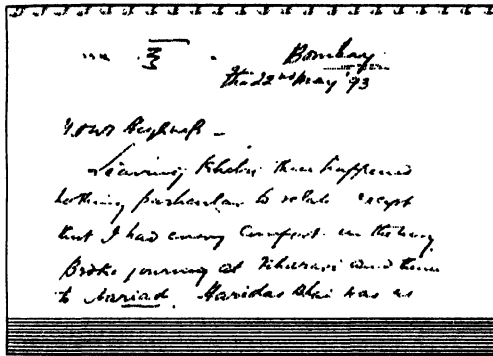 ॐ
Bombay
The 22nd May '93
Your Highness –
Leaving Khetri there happened
nothing particular to relate except
that I had every comfort in the way
Broke journey at and then
to Nariad. Haridas Bhai was as